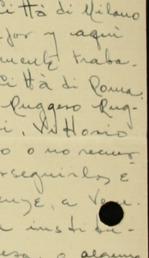 Città di Milano
jor y aquí
mente traba-
Città di Roma.
Ruggero Rug-
i, Vittorio
o o no recur-
erseguirlos, e
a Vene-
a institu-
o alguna